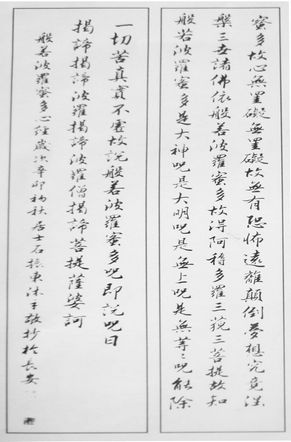 蜜多故心無罣礙無罣礙故無有恐怖遠離顛倒夢想究竟涅
槃三世諸佛依般若波羅蜜多故得阿耨多羅三藐三菩提故知
般若波羅蜜多是大神呪是大明呪是無上呪是無等々呪能除
一切苦真實不虛故說般若波羅蜜多呪即說呪曰
揭諦揭諦波羅揭諦波羅僧揭諦菩提薩婆訶
般若波羅蜜多心經歲次辛卯初秋居士石振東沐手敬抄於長安